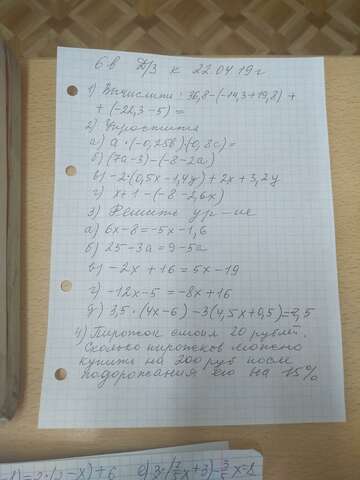 6в Д/З к 22.04.19г
1) Вычислить: 36,8-(-14,3+19,8)+
+(-22,3-5)=
2) Упростите
а) a·(-0,25b)·(0,8c)=
б) (7a-3)-(-8-2a)
в) -2·(0,5x-1,4y)+2x+3,2y
г) x+1-(-8-2,6x)
3) Решить ур-ие
а) 6x-8=-5x-1,6
б) 25-3a=9-5a
в) -2x+16=5x-19
г) -12x-5=-8x+16
д) 3,5·(4x-6)-3(4,5x+0,5)=2,5
4) Пирожок стоил 20 рублей.
Сколько пирожков можно
купить на 200 руб после
подорожания его на 15%
-1)=2·(2-x)+6 е) 3·(